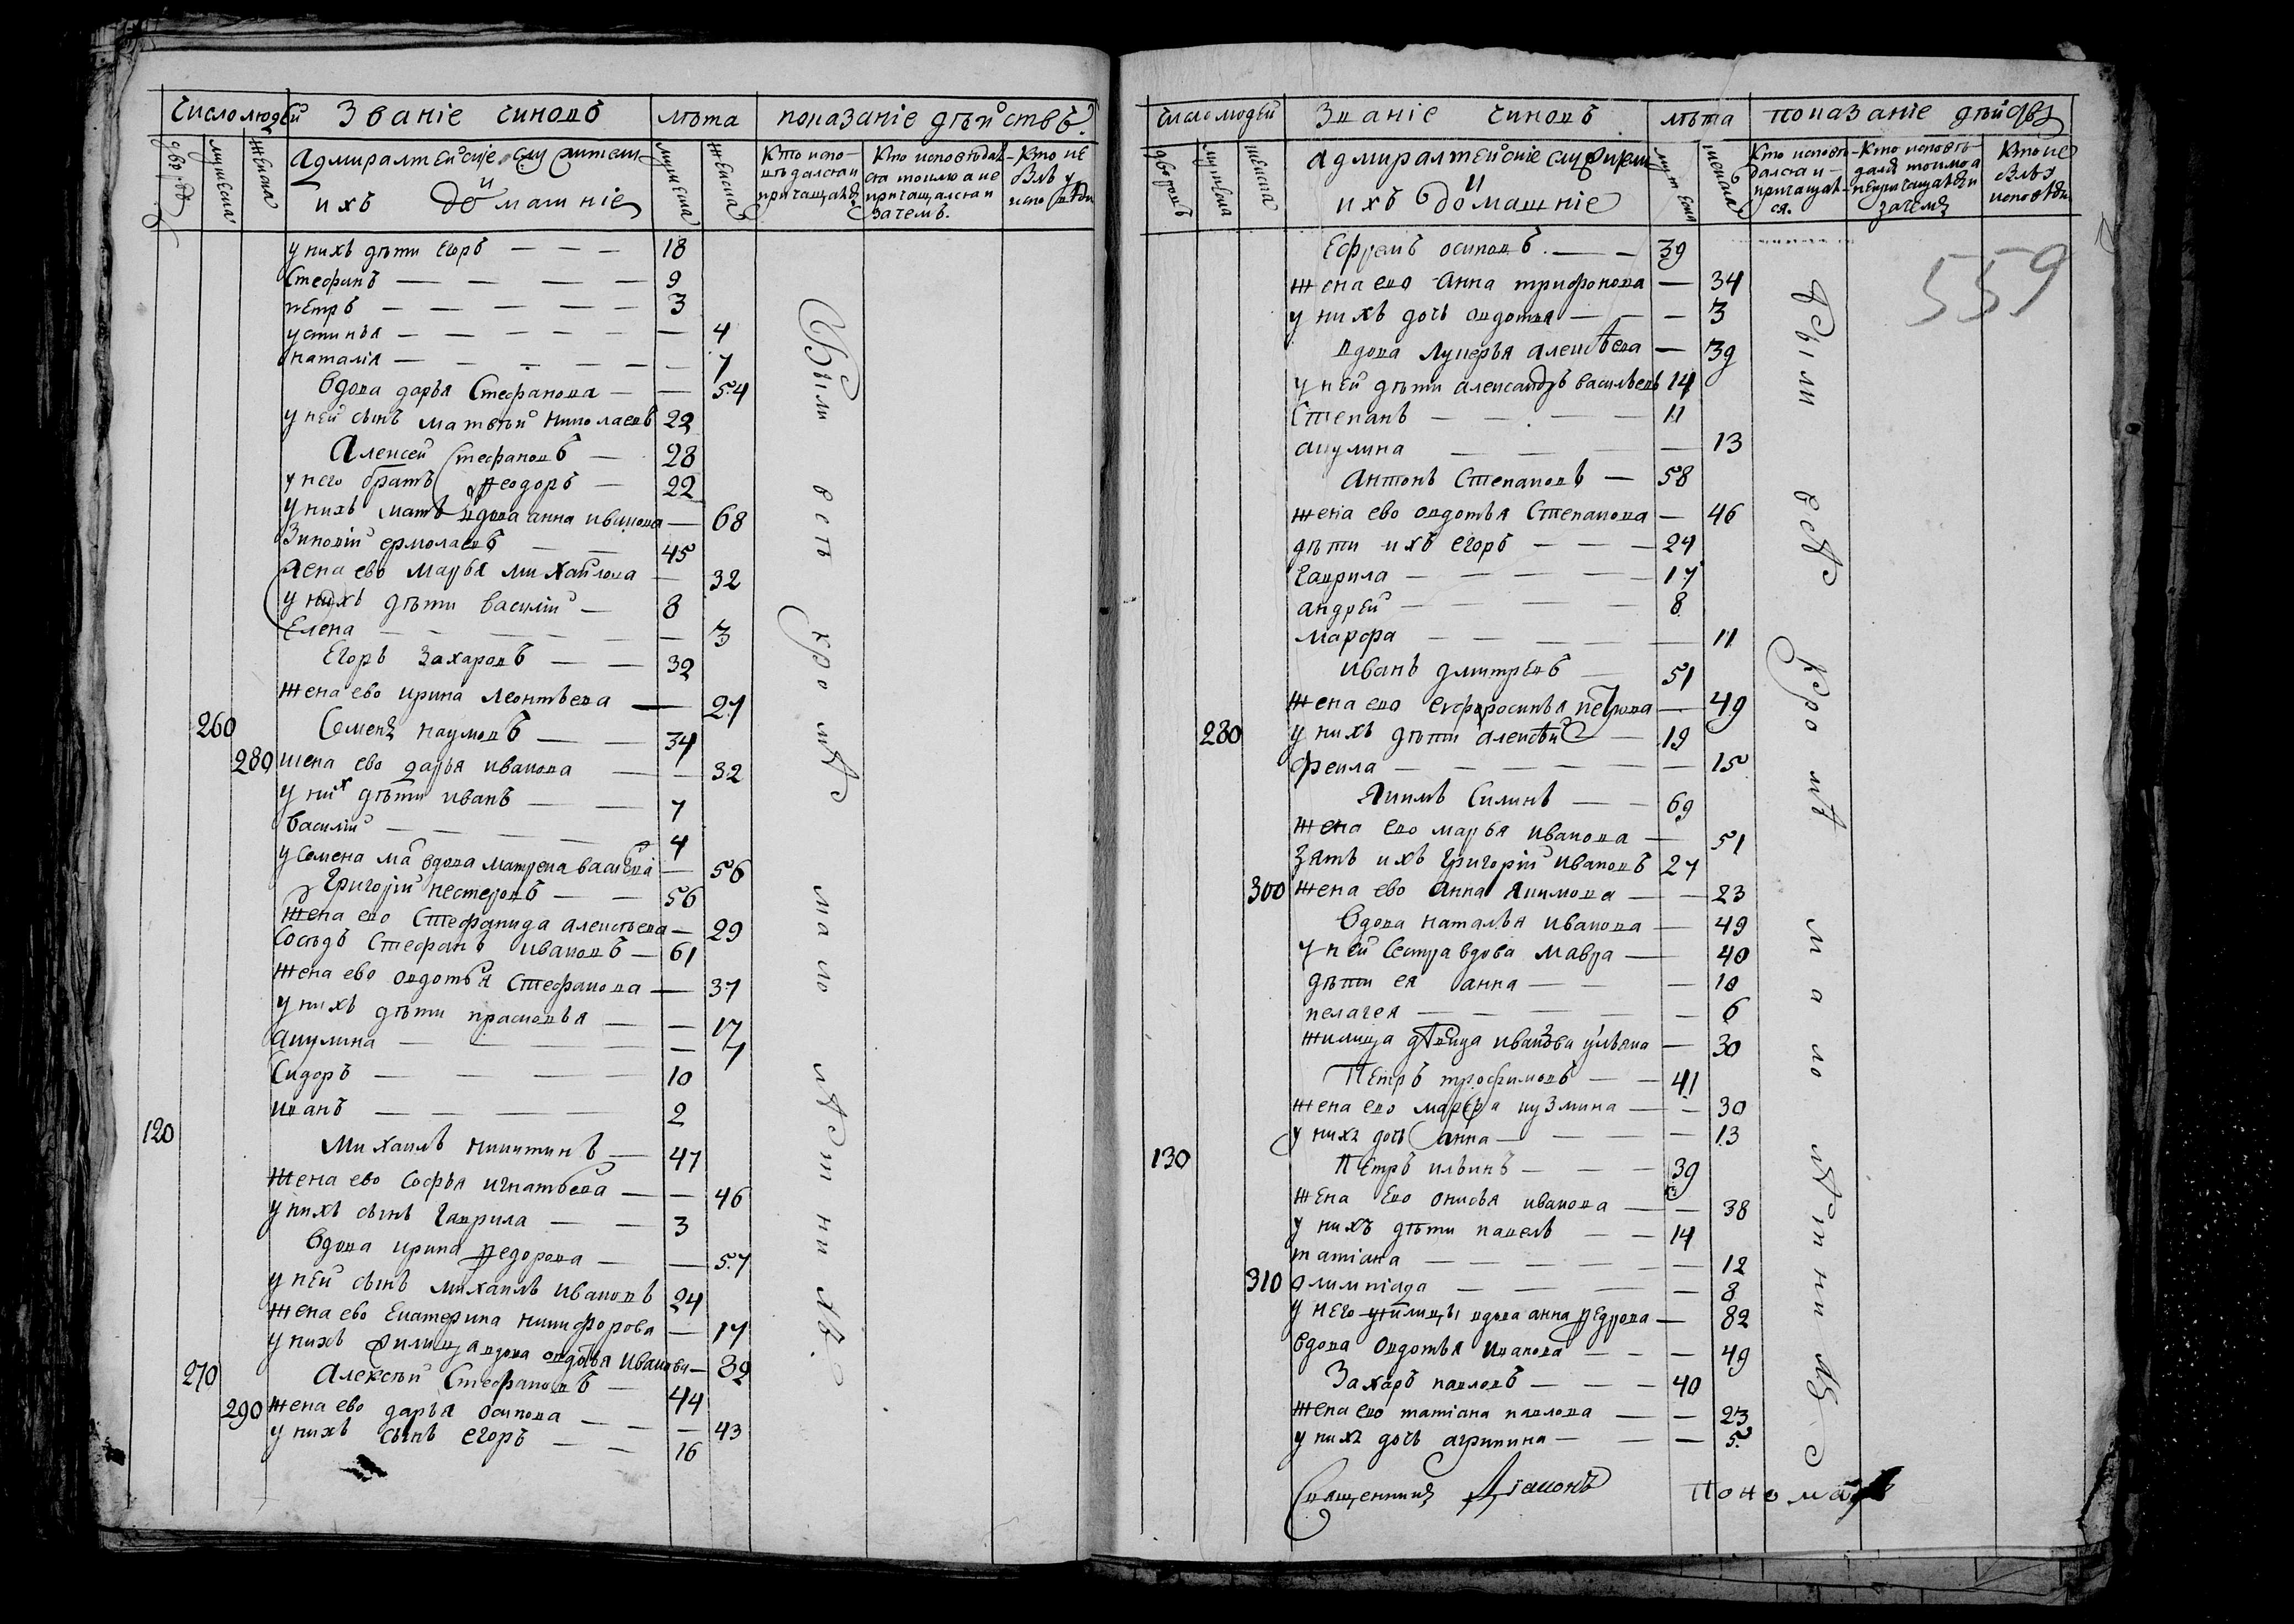 число людей званіе чиновъ лѣта показаніе дѣйствъ.
дворовъ мужеска женска адмиралтейскіе служители и ихъ домашніе мужеска женска Кто испо- Кто исповѣдал- Кто не
вѣдался и ся токмо а не былъ у
причащался причащался и исповѣди
зачемъ.
у нихъ дѣти егоръ — — — 18
Стефанъ — — — — 9
петръ — — — — — 3
устинья — — — — — — 4
наталія — — — — — — 7
вдова дарья Стефанова — — 54
у ней сынъ матвѣй николаевъ 22
Алексей Стефановъ — 28
у него братъ Ѳеодоръ — 22
у нихъ мать вдова анна иванова — 68
Зиновій ермолаевъ — — 45
жена ево марья михайлова — 32
у нихъ дѣти василій — 8
Елена — — — — — — 3
Егоръ Захаровъ — — 32
жена ево ирина леонтьева — 21
260 Семенъ наумовъ — — 34
289 жена ево дарья иванова — — 32
у них дѣти иванъ — — 7
василій — — — — 4
у Семена ма вдова матрена васильева — 56
Григорій нестеровъ — — 56
жена ево Стефанида алексѣева — 29
Сосѣдъ Стефанъ ивановъ — 61
жена ево овдотья Стефанова — 37
у нихъ дѣти прасковья — — 17
акулина — — — — — 7
Сидоръ — — — — 10
иванъ — — — — 2
120
Михаилъ никитинъ — 47
жена ево Софья игнатьева — — 46
у нихъ сынъ Гаврила — — 3
вдова ирина Ѳедорова — — 57
у ней сынъ михаилъ ивановъ 24
жена ево Екатерина никифорова — 17
у нихъ жилица вдова овдотья иванова — 82
270 Алексѣй Стефановъ — 44
290 жена ево дарья осипова — — — 43
у нихъ сынъ егоръ — — 16
Были всѣ кромѣ малолѣтнихъ.
число людей званіе чиновъ лѣта показаніе дѣйствъ
дворовъ мужеска женска адмиралтейскіе служители и ихъ домашніе мужеска женска Кто исповѣ- Кто исповѣ- Кто не
дался и дался токмо а былъ у
причащал- непричащался и исповѣди
ся. зачемъ
559
Ефремъ осиповъ. — — 39
жена ево Анна трифонова — 34
у нихъ дочь овдотья — — — 3
вдова лукерья алексѣева — 39
у ней дѣти александръ васильевъ 14
Степанъ — — — — 11
акулина — — — — 13
Антонъ Степановъ — 58
жена ево овдотья Степанова — 46
дѣти ихъ егоръ — — — 24
Гаврила — — — — — 17
андрей — — — — 8
марфа — — — — — 11
иванъ дмитревъ — 51
жена ево евфросинья петрова — 49
280 у нихъ дѣти алексѣй — 19
фекла — — — — — — 15
Якимъ Силинъ — — 69
жена ево марья иванова — 51
Зять ихъ Григорій ивановъ 27
300 жена ево Анна Якимова — — 23
вдова наталья иванова — 49
у ней Сестра вдова мавра — 40
дѣти ея анна — — — 10
пелагея — — — — — 6
жилица дѣвица иванова ульяна — 30
Петръ трофимовъ — — 41
жена ево марфа кузмина — — 30
у нихъ дочь анна — — — — 13
130
Петръ ильинъ — — — 39
жена ево онисья иванова — — 38
у нихъ дѣти павелъ — — 14
татіана — — — — — — 12
310 олимпіада — — — — 8
у него жилицы вдова анна Ѳедорова — 82
вдова Овдотья иванова — — — 49
Захаръ павловъ — — — 40
жена ево татіана павлова — — 23
у нихъ дочь агрипина — — — 5
Были всѣ кромѣ малолѣтнихъ.
Священникъ пономарь